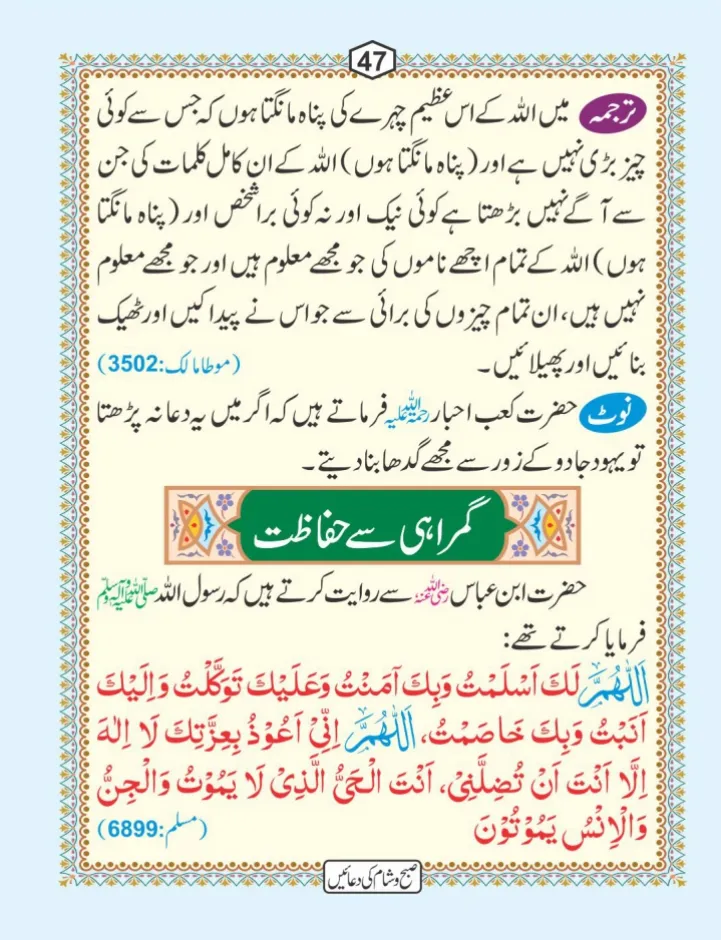 47
ترجمہ میں اللہ کے اس عظیم چہرے کی پناہ مانگتا ہوں کہ جس سے کوئی
چیز بڑی نہیں ہے اور (پناہ مانگتا ہوں) اللہ کے ان کامل کلمات کی جن
سے آگے نہیں بڑھتا ہے کوئی نیک اور نہ کوئی برا شخص اور (پناہ مانگتا
ہوں) اللہ کے تمام اچھے ناموں کی جو مجھے معلوم ہیں اور جو مجھے معلوم
نہیں ہیں، ان تمام چیزوں کی برائی سے جو اس نے پیدا کیں اور ٹھیک
بنائیں اور پھیلائیں۔ (موطا مالک:3502)
نوٹ حضرت کعب احبار رحمۃ اللہ علیہ فرماتے ہیں کہ اگر میں یہ دعا نہ پڑھتا
تو یہود جادو کے زور سے مجھے گدھا بنا دیتے۔
گمراہی سے حفاظت
حضرت ابن عباس رضی اللہ عنہ سے روایت کرتے ہیں کہ رسول اللہ صلی اللہ علیہ وآلہ وسلم
فرمایا کرتے تھے:
اَللّٰهُمَّ لَكَ اَسْلَمْتُ وَبِكَ آمَنْتُ وَعَلَيْكَ تَوَكَّلْتُ وَاِلَيْكَ
اَنَبْتُ وَبِكَ خَاصَمْتُ، اَللّٰهُمَّ اِنِّيْ اَعُوْذُ بِعِزَّتِكَ لَا اِلٰهَ
اِلَّا اَنْتَ اَنْ تُضِلَّنِيْ، اَنْتَ الْحَيُّ الَّذِيْ لَا يَمُوْتُ وَالْجِنُّ
وَالْاِنْسُ يَمُوْتُوْنَ (مسلم:6899)
صبح و شام کی دعائیں